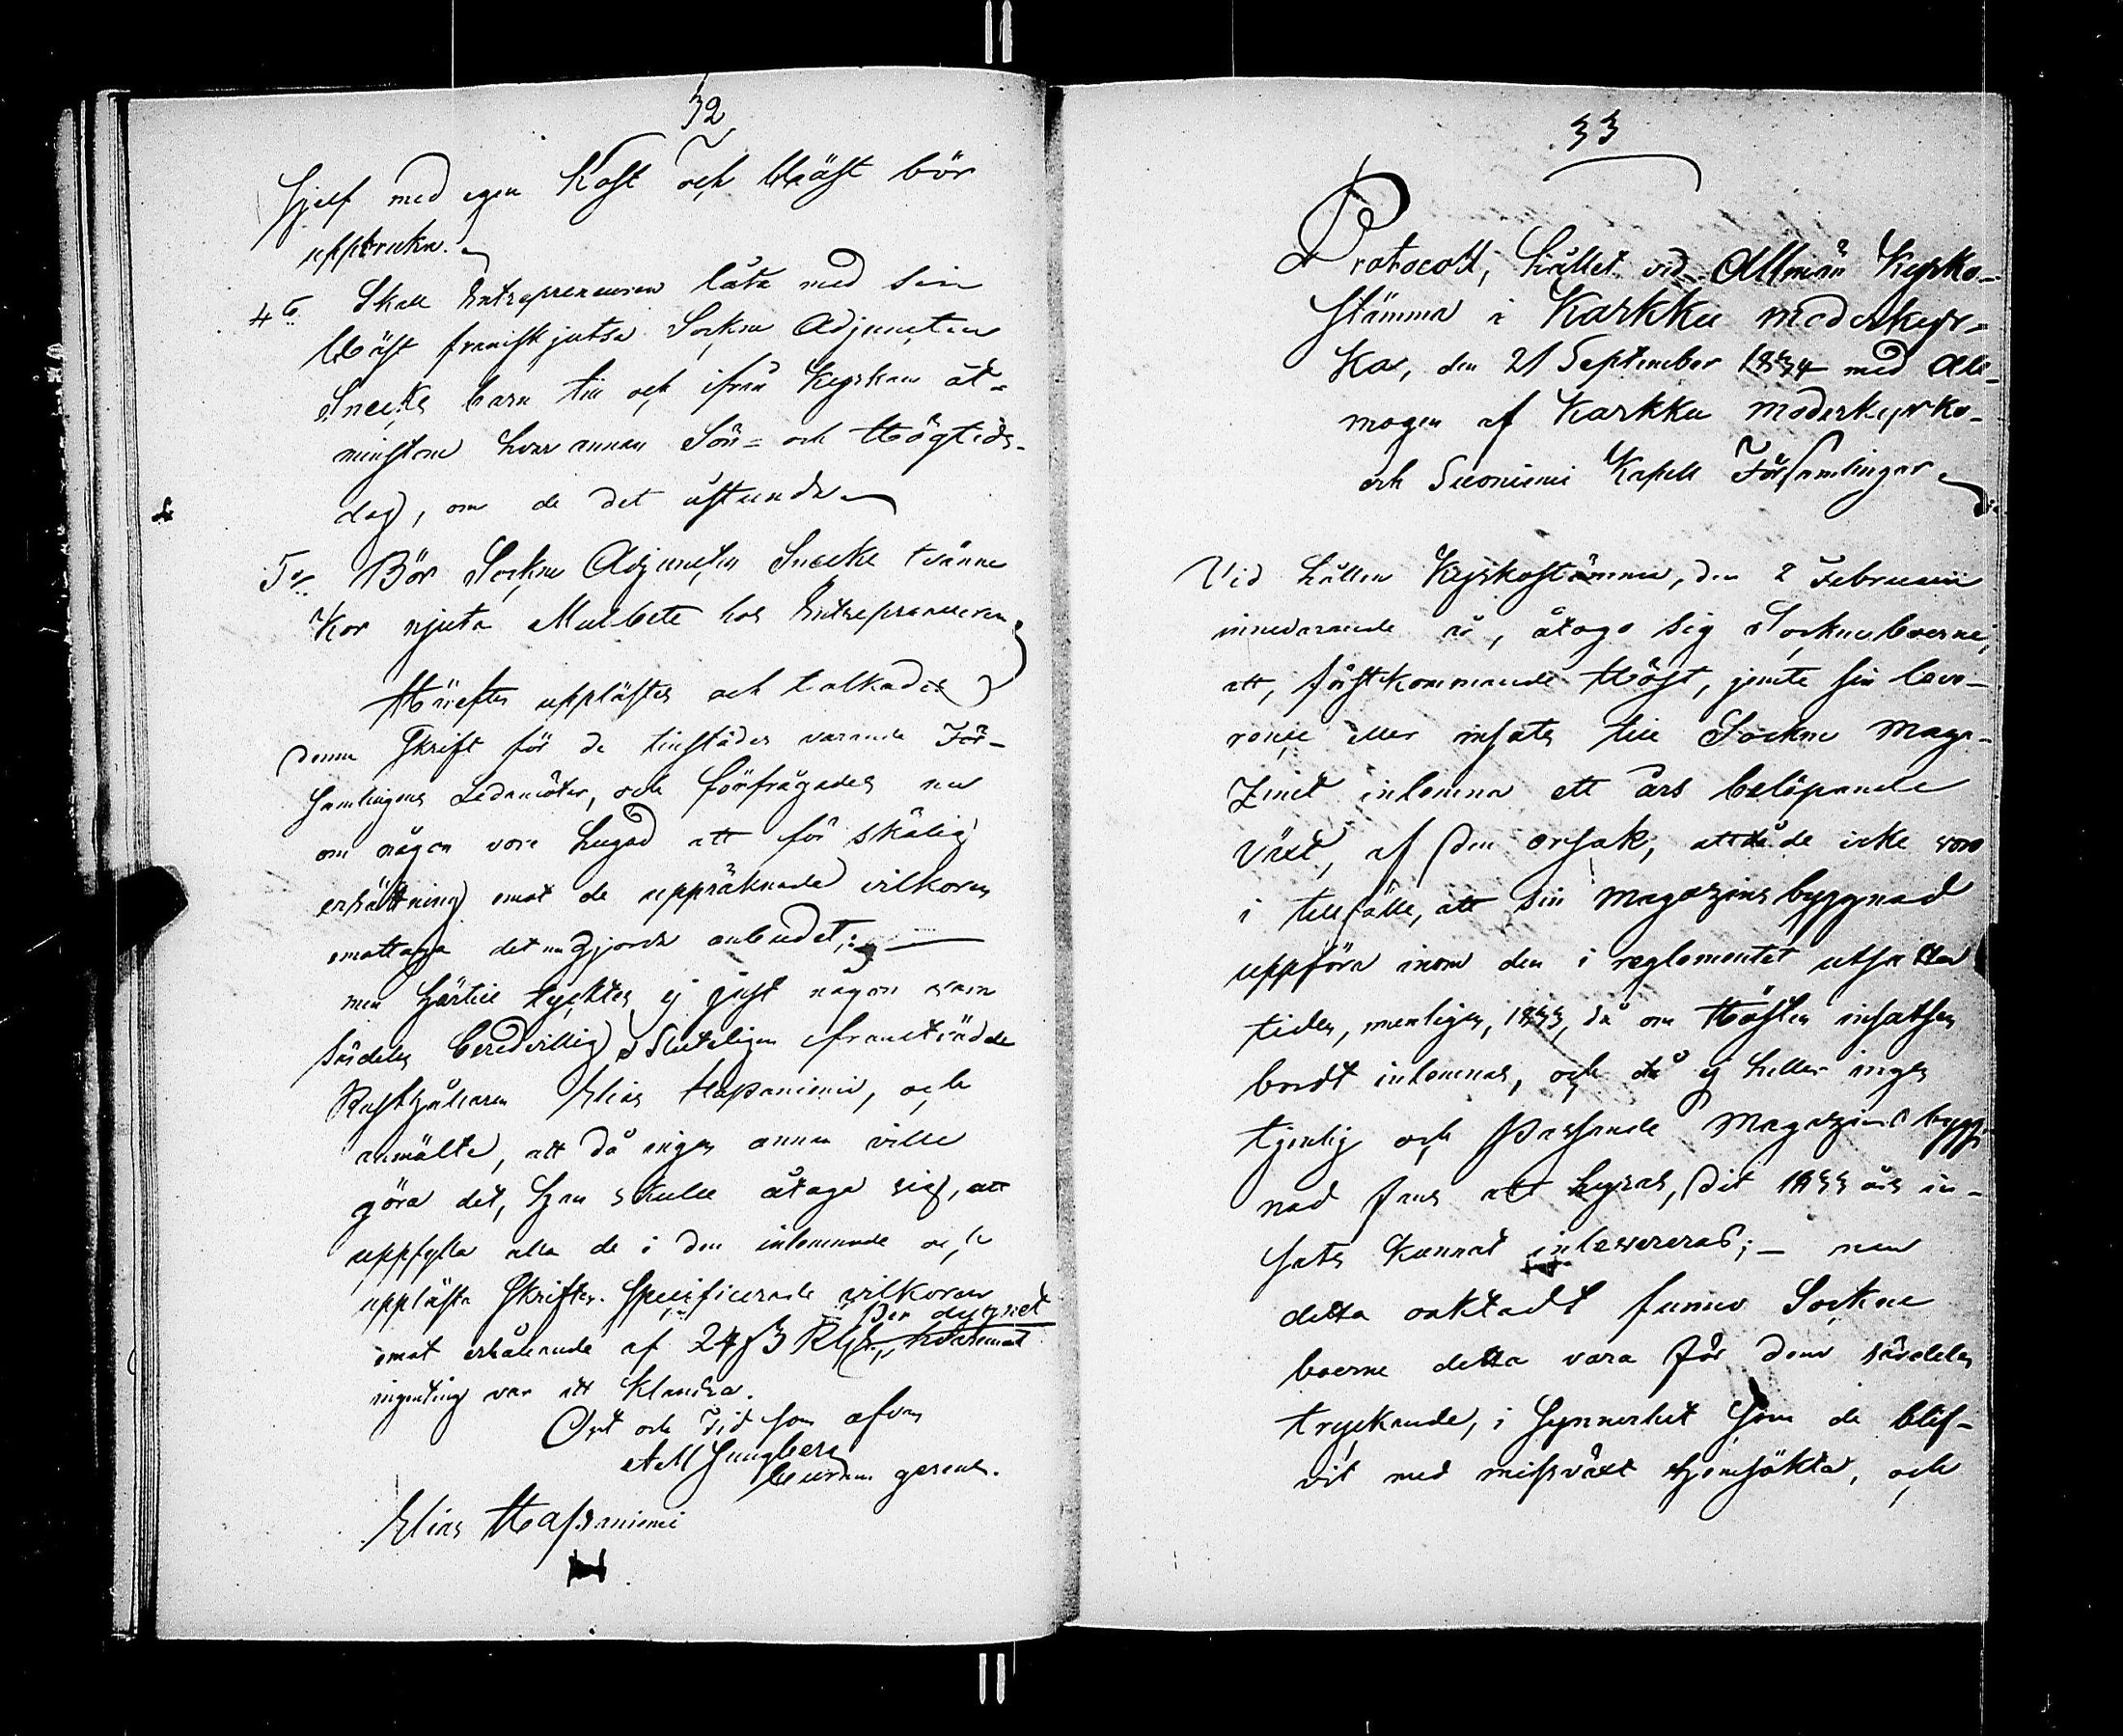 32
sjelf med egen Kost och Häst bör
uppbruka.
4o Skall Entrepreneuren låta med sin
Häst framskjutsa Sockne Adjuncten
Sneckes barn till och ifrån Kyrkan åt-
minstone hvar annan Sön- och Högtids-
dag, om de det åstunda
5o Bör Sockne Adjuncten Snecke tvänne
Kor njuta Mulbete hos Entrepreneuren
Härefter upplästes och tolkades
denna Skrift för de tillstädes varande För-
samlingens Ledamöter, och förfrågades nu
om någon vore hugad att för skälig
ersättning emot de uppräknade vilkoren
emottaga det nu gjorda anbudet;
men härtill tycktes ej just någon vara
särdeles beredvillig. Sluteligen framträdde
Rusthållaren Elias Hapaniemi, och
anmälte, att då ingen annan ville
göra det, han skulle åtaga sig, att
uppfylla alla de i den inlemnade och
upplästa Skriften specificerade vilkoren
per dygnet
emot erhållande af 24 ß RGs, hvaremot
ingenting var att klandra.
Ort och Tid som ofvan
A M Ljungberg
Curam gerens.
Elias Hapaniemi
33
Protocoll, hållet vid Allmän Kyrko-
stämma i Karkku moderkyr-
ka, den 21 September 1834 med All-
mogen af Karkku moderkyrko-
och Suoniemi Kapell Församlingar
Vid hållen Kyrkostämma, den 2 Februarii
innevarande år, åtogo sig Sockneboerne,
att, förstkommande Höst, jemte sin leve-
rance eller insats till Sockne Maga-
zinet inlemna ett års belöpande
växt, af den orsak, att då de icke voro
i tillfälle, att sin Magazins byggnad
uppföra inom den i reglementet utsatta
tiden, nemligen, 1833, då om Hösten insatsen
bordt inlemnas, och då ej heller ingen
tjenlig och passande Magazins bygg-
nad fans att hyras, dit 1833 års in-
sats kunnat inlevereras; – men
detta oaktadt funno Sockne
boerne detta vara för dem särdeles
tryckande, i synnerhet som de blif-
vit med missväxt hemsökta, och